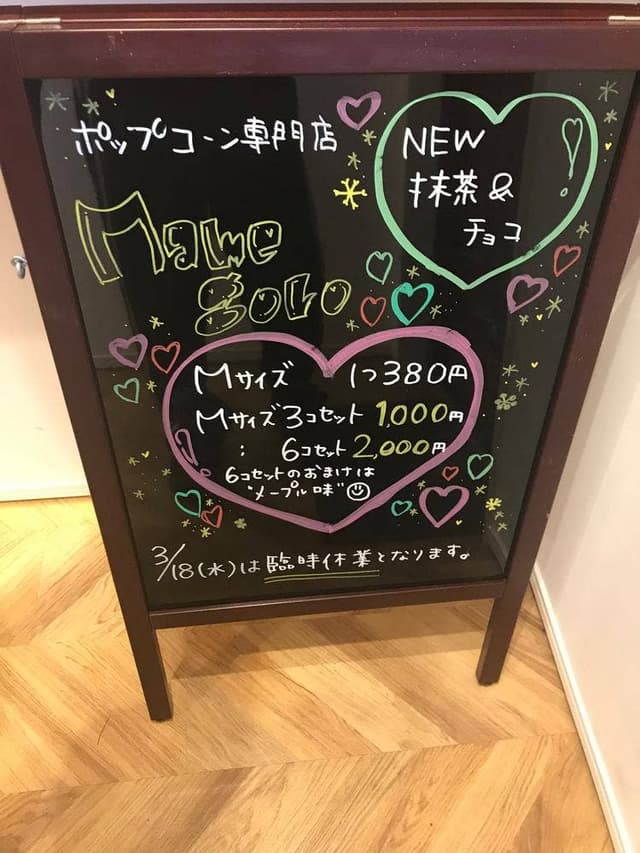 ポップコーン専門店
NEW
抹茶&
チョコ
Mame
goro
Mサイズ 1つ380円
Mサイズ3コセット 1,000円
: 6コセット 2,000円
6コセットのおまけは
"メープル味"
3/18(水)は臨時休業となります。